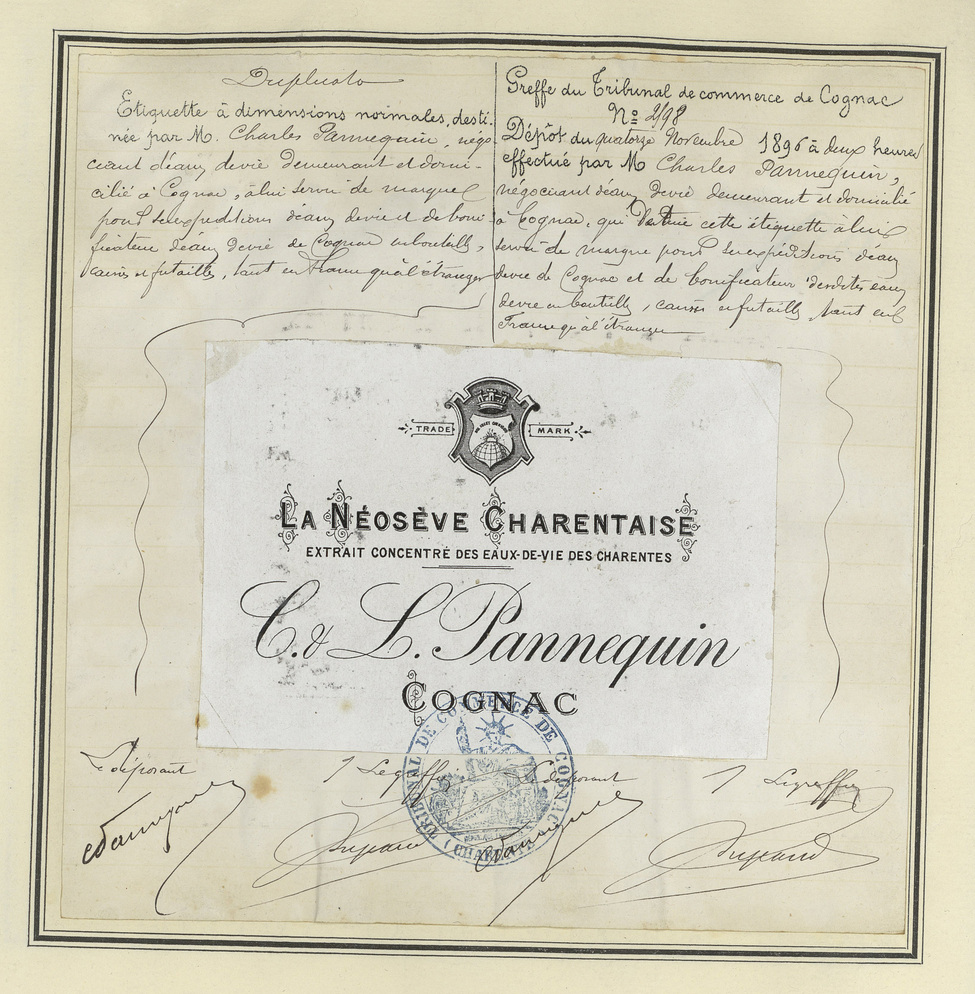 Duplicata
Etiquette à dimensions normales, desti-
née par M. Charles Pannequin, négo-
ciant d'eaux devie demeurant et domi-
cilié à Cognac, à lui servir de marque
pour ses expéditions d'eaux devie et de boni-
ficateur d'eaux devie de Cognac en bouteilles,
caisses et futailles, tant en France qu'à l'étranger
Greffe du Tribunal de commerce de Cognac
Nº 2198
Dépôt du quatorze Novembre 1896 à deux heures
effectué par M Charles Pannequin,
négociant d'eaux devie demeurant et domicilié
à Cognac, qui destine cette étiquette à lui
servir de marque pour ses expéditions d'eaux
devie de Cognac et de bonificateur desdites eaux
devie en bouteilles, caisses et futailles, tant en
France qu'à l'étranger
TRADE MARK
LA NÉOSÈVE CHARENTAISE
EXTRAIT CONCENTRÉ DES EAUX-DE-VIE DES CHARENTES
C. & L. Pannequin
COGNAC
TRIBUNAL DE COMMERCE DE COGNAC
(CHARENTE)
Le déposant
Le greffier
Le déposant
Le greffier